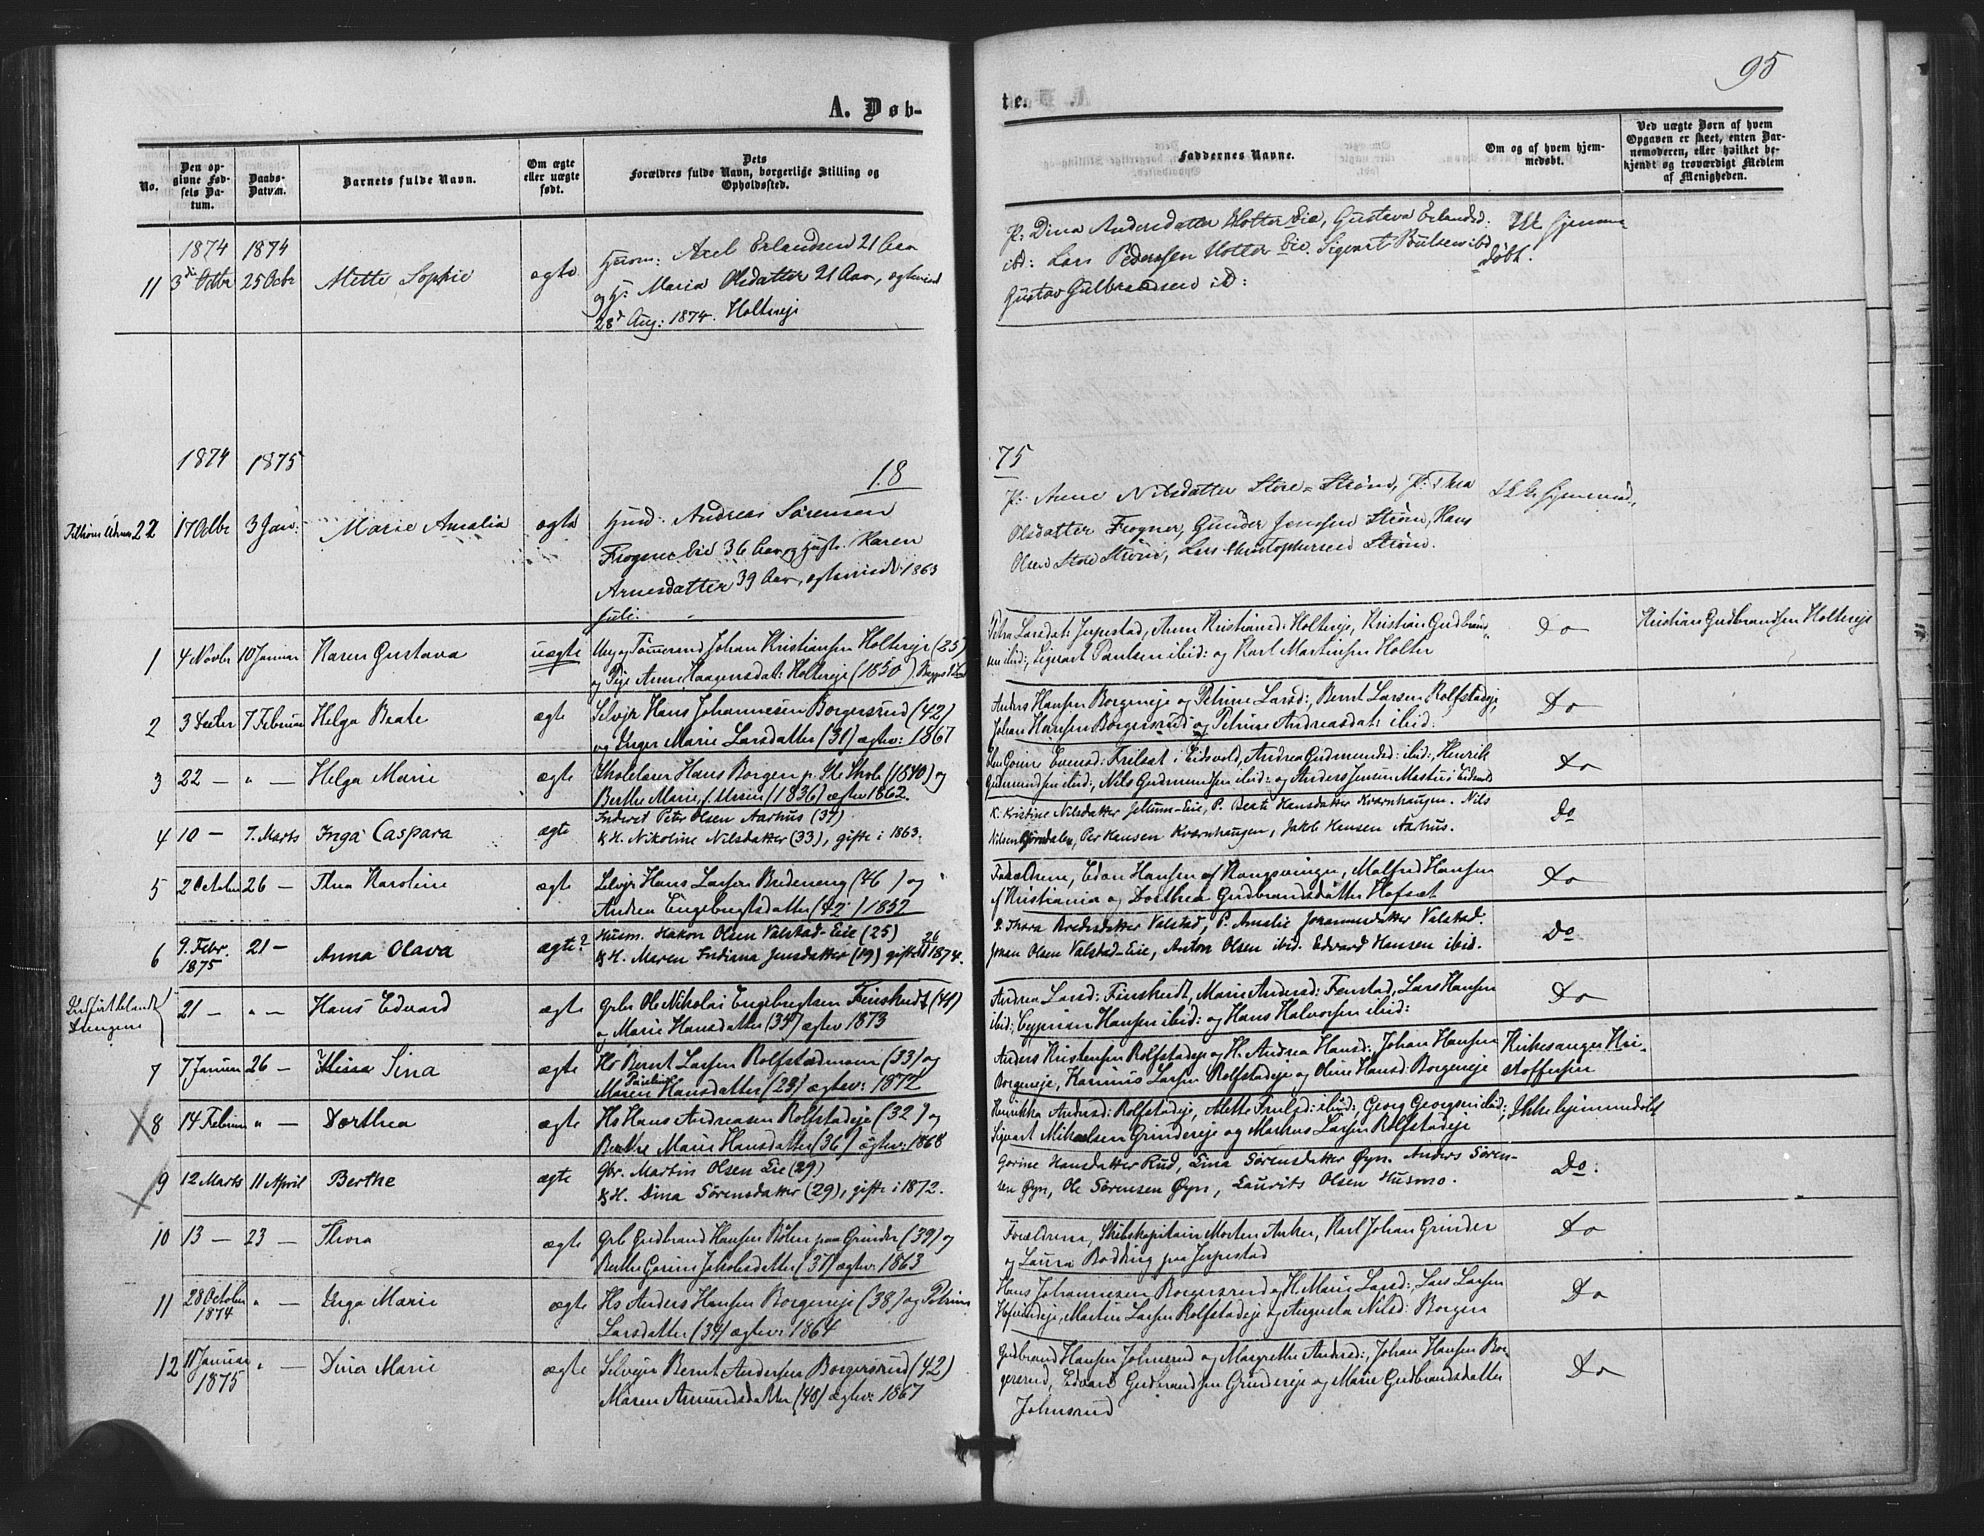 95
A. Døb-
te.
No.
Den op-
givne Fød-
sels Da-
tum.
Daabs-
Datum.
Barnets fulde Navn.
Om ægte
eller uægte
født.
Dets
Forældres fulde Navn, borgerlige Stilling og
Opholdssted.
Faddernes Navne.
Om og af hvem hjem-
medøbt.
Ved uægte Børn af hvem
Opgaven er skeet, enten Bar-
nemoderen, eller hvilket be-
kjendt og troværdigt Medlem
af Menigheden.
1874 1874
11 3die Octbr 25 Octbr Mette Sophie ægte
Husm: Axel Erlandsen 21 Aar
og H: Maria Olsdatter 21 Aar, egteviet
28d Aug: 1874. Holtereje
P: Dina Andersdatter Holter Eie, Gustava Erlandsd:
ibd: Lars Pedersen Holter Eie. Sigvart Poulsen ibd
Gustav Gulbrandsen ibd:
Ikke hjemme
døbt.
1874 1875
18
75
22 17 Octbr 3 Jan: Marie Amalia ægte
Husd: Andreas Sørensen
Frogner Eie 36 Aar og Hust: Karen
Arnesdatter 39 Aar, egteviede 1863
Juli.
P: Anne Nilsdatter Store-Strønd, P: Thea
Olsdatter Frogner, Gunder Jensen Strøm, Hans
Olsen Store Strøni, Lars Christophersen Strønd.
1 4 Novbr 10 Januar Karen Gustava uægte
Ung Tømmermd Johan Kristiansen Holtereje (25)
og Pige Anne Haagensdat: Holtereje (1850)
Petra Larsdat: Jerpestad, Anne Kristiansd: Holtereje, Kristian Gudbrand-
sen ibid:, Sigvart Paulsen ibid: og Karl Martinsen Holter
Do
Kristian Gudbrandsen Holtereje
2 3 Decbr 7 Februar Helga Beate ægte
Selvejr Hans Johannesen Borgersrud (42)
og Inger Marie Larsdatter (31) ægtev: 1867
Anders Hansen Borgeneje og Petrine Larsd:, Bernt Larsen Rolfstadeje,
Johan Hansen Borgersrud og Petrine Andreasdat: ibid:
Do
3 22 — " — Helga Marie ægte
Skolelærer Hans Borgen p. Ste Skole (1840) og
Berthe Marie f. Ursin (1836) ægtev 1862.
Gudmundsen ibid:, Nils Gudmundsen ibid: og Anders Jensen
Do
4 10 — 7. Marts Inga Caspara ægte
Inderst Peter Olsen Aarhus (37)
& H. Nikoline Nilsdatter (33), gifte i 1863.
K. Kristine Nilsdatter Jellum-Eie, P. Beate Hansdatter Kværnhaugen. Nils
Nilsen Gjørndalen, Per Hansen Kværnhaugen, Jakob Hansen Aarhus.
Do
5 2 October 26 — Thea Karoline ægte
Selvejr Hans Larsen Bredeneng (46) og
Andrea Engebrigtsdatter (42) 1852
Forældrene, Edon Hansen af Kongsvinger, Malfred Hansen
f Kristiania og Dorthea Gudbrandsdatter Hofsæt
Do
6 9. Febr. 1875 21 — Anna Olava ægte?
Husm. Hakon Olsen Valstad-Eie (25)
& H. Maren Indiana Jensdatter (19) gifte 26/ 1874.
P. Thora Bredesdatter Valstad, P. Amalie Johannesdatter Valstad.
Johan Olsen Valstad-Eie, Anton Olsen ibid. Edvard Hansen ibid.
Do
21 — " — Hans Edvard ægte
Grbr Ole Nikolai Engebrigtsen Finskudt (44)
og Marie Hansdatter (35) ægtev 1873
Andrea Larsd: Finskudt, Marie Andersd: Fenstad, Lars Hansen
ibid:, Cyprian Hansen ibid: og Hans Halvorsen ibid:
Do
7 7 Januar 26 — Sina ægte
Hs Bernt Larsen Rolfstadmoen (33) og
Maren Pauline Hansdatter (23) ægtev: 1872
Anders Kristensen Rolfstadeje og H. Andrea Hansd:, Johan Hansen
Borgeneje, Karinus Larsen Rolfstadeje og Oline Hansd: Borgeneje
Kirkesanger Kri-
stoffersen
8 14 Februar " — Dorthea ægte
Hs Hans Andreasen Rolfstadeje (32) og
Berthe Marie Hansdatter (36) ægtev: 1868
Henrikka Andersd: Rolfstadeje, Mette Truelsd: ibid:, Georg Georgsen ibid:,
Sigvart Mikaelsen Grindereje og Markus Larsen Rolfstadeje
Ikke hjemmedøbt
9 12 Marts 11 April Berthe ægte
Gbr. Martin Olsen Eie (29)
& H. Dina Sørensdatter (29), gifte i 1872.
Gorine Hansdatter Rud, Lina Sørensdatter Øyn. Anders Søren-
sen Øyn, Ole Sørensen Øyn, Laurits Olsen Husmo.
Do.
10 13 — 23 — Thora ægte
Grb Gudbrand Hansen Bøhn paa Grinder (39) og
Berthe Gorine Jakobsdatter (37) ægtev: 1863
Forældrene, Skibskapitain Morten Anker, Karl Johan Grinder
og Laura Bødding paa Jerpestad
Do
11 28 October 1874 " — Inga Marie ægte
Hs Anders Hansen Borgeneje (38) og Petrine
Larsdatter (34) ægtev: 1864
Hans Johannesen Borgersrud og H. Marie Larsd:, Lars Larsen
Hofsindeje, Martin Larsen Rolfstadeje og Augusta Nilsd: Borgen
Do
12 11 Januar 1875 " — Dina Marie ægte
Selvejr Bernt Andersen Borgersrud (42)
Maren Amundsdatter (40) ægtev: 1867
Gudbrand Hansen Johnsrud og Margrethe Andersd:, Johan Hansen Bor-
gersrud, Edvard Gudbrandsen Grindereje og Marie Gudbrandsdatter
Johnsrud
Do